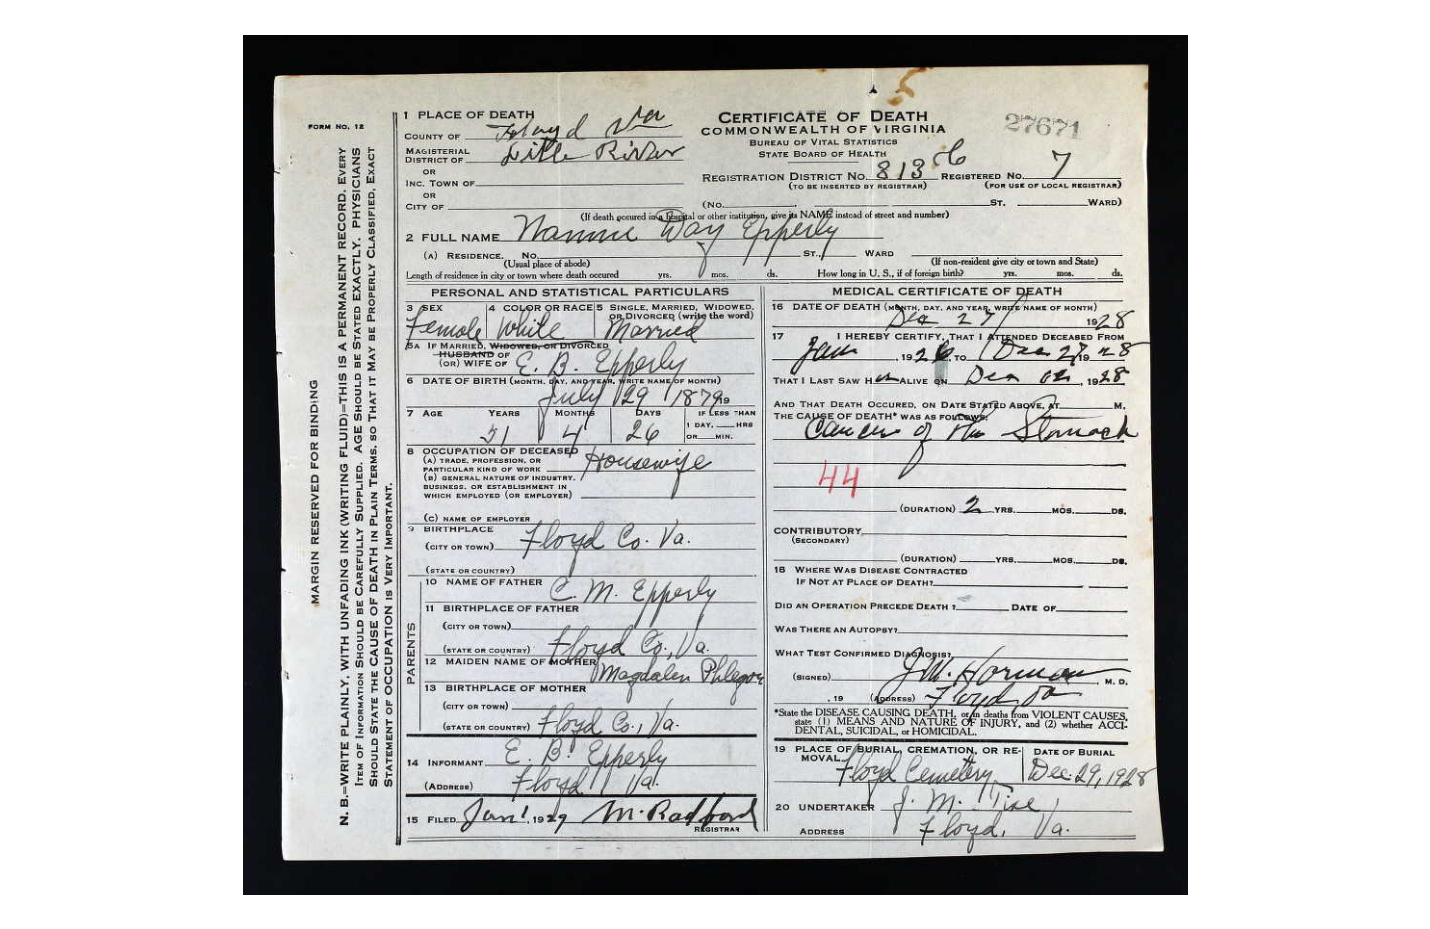 FORM NO. 12
MARGIN RESERVED FOR BINDING
N. B.—WRITE PLAINLY, WITH UNFADING INK (WRITING FLUID)—THIS IS A PERMANENT RECORD. EVERY
ITEM OF INFORMATION SHOULD BE CAREFULLY SUPPLIED. AGE SHOULD BE STATED EXACTLY. PHYSICIANS
SHOULD STATE THE CAUSE OF DEATH IN PLAIN TERMS, SO THAT IT MAY BE PROPERLY CLASSIFIED. EXACT
STATEMENT OF OCCUPATION IS VERY IMPORTANT.
1 PLACE OF DEATH
COUNTY OF Floyd Va
MAGISTERIAL
DISTRICT OF Little River
OR
INC. TOWN OF
OR
CITY OF
CERTIFICATE OF DEATH
COMMONWEALTH OF VIRGINIA
BUREAU OF VITAL STATISTICS
STATE BOARD OF HEALTH
27671
REGISTRATION DISTRICT NO. 813 REGISTERED NO. 7
(TO BE INSERTED BY REGISTRAR) (FOR USE OF LOCAL REGISTRAR)
(NO. ST. WARD)
(If death occured in a hospital or other institution, give its NAME instead of street and number)
2 FULL NAME Nannie Day Epperly
(A) RESIDENCE. NO. ST., WARD
(Usual place of abode) (If non-resident give city or town and State)
Length of residence in city or town where death occured yrs. mos. ds. How long in U. S., if of foreign birth? yrs. mos. ds.
PERSONAL AND STATISTICAL PARTICULARS
3 SEX 4 COLOR OR RACE 5 SINGLE, MARRIED, WIDOWED,
OR DIVORCED (write the word)
Female White Married
5A IF MARRIED, WIDOWED, OR DIVORCED
HUSBAND OF
(OR) WIFE OF E. B. Epperly
6 DATE OF BIRTH (MONTH, DAY, AND YEAR, WRITE NAME OF MONTH)
July 29 1879
7 AGE YEARS MONTHS DAYS IF LESS THAN
1 DAY, HRS
OR MIN.
51 4 26
8 OCCUPATION OF DECEASED
(A) TRADE, PROFESSION, OR
PARTICULAR KIND OF WORK Housewife
(B) GENERAL NATURE OF INDUSTRY,
BUSINESS, OR ESTABLISHMENT IN
WHICH EMPLOYED (OR EMPLOYER)
(C) NAME OF EMPLOYER
9 BIRTHPLACE
(CITY OR TOWN) Floyd Co. Va.
(STATE OR COUNTRY)
PARENTS
10 NAME OF FATHER C. M. Epperly
11 BIRTHPLACE OF FATHER
(CITY OR TOWN)
(STATE OR COUNTRY) Floyd Co., Va.
12 MAIDEN NAME OF MOTHER Magdalen Phlegar
13 BIRTHPLACE OF MOTHER
(CITY OR TOWN)
(STATE OR COUNTRY) Floyd Co., Va.
14 INFORMANT E. B. Epperly
(ADDRESS) Floyd Va.
15 FILED Jan 1, 1929 M. Radford
REGISTRAR
MEDICAL CERTIFICATE OF DEATH
16 DATE OF DEATH (MONTH, DAY, AND YEAR, WRITE NAME OF MONTH)
Dec 27 1928
17 I HEREBY CERTIFY, THAT I ATTENDED DECEASED FROM
Jan , 1926, TO Dec 27 1928
THAT I LAST SAW H ALIVE ON Dec , 1928
AND THAT DEATH OCCURED, ON DATE STATED ABOVE, AT M.
THE CAUSE OF DEATH* WAS AS FOLLOWS:
Cancer of the Stomach
44
(DURATION) 2 YRS. MOS. DS.
CONTRIBUTORY
(SECONDARY)
(DURATION) YRS. MOS. DS.
18 WHERE WAS DISEASE CONTRACTED
IF NOT AT PLACE OF DEATH?
DID AN OPERATION PRECEDE DEATH? DATE OF
WAS THERE AN AUTOPSY?
WHAT TEST CONFIRMED DIAGNOSIS?
(SIGNED) J.M. Harman M. D.
, 19 (ADDRESS) Floyd, Va
*State the DISEASE CAUSING DEATH, or in deaths from VIOLENT CAUSES,
state (1) MEANS AND NATURE OF INJURY, and (2) whether ACCI-
DENTAL, SUICIDAL, or HOMICIDAL.
19 PLACE OF BURIAL, CREMATION, OR RE- DATE OF BURIAL
MOVAL Floyd Cemetery Dec. 29, 1928
20 UNDERTAKER J. M. Tise
ADDRESS Floyd, Va.